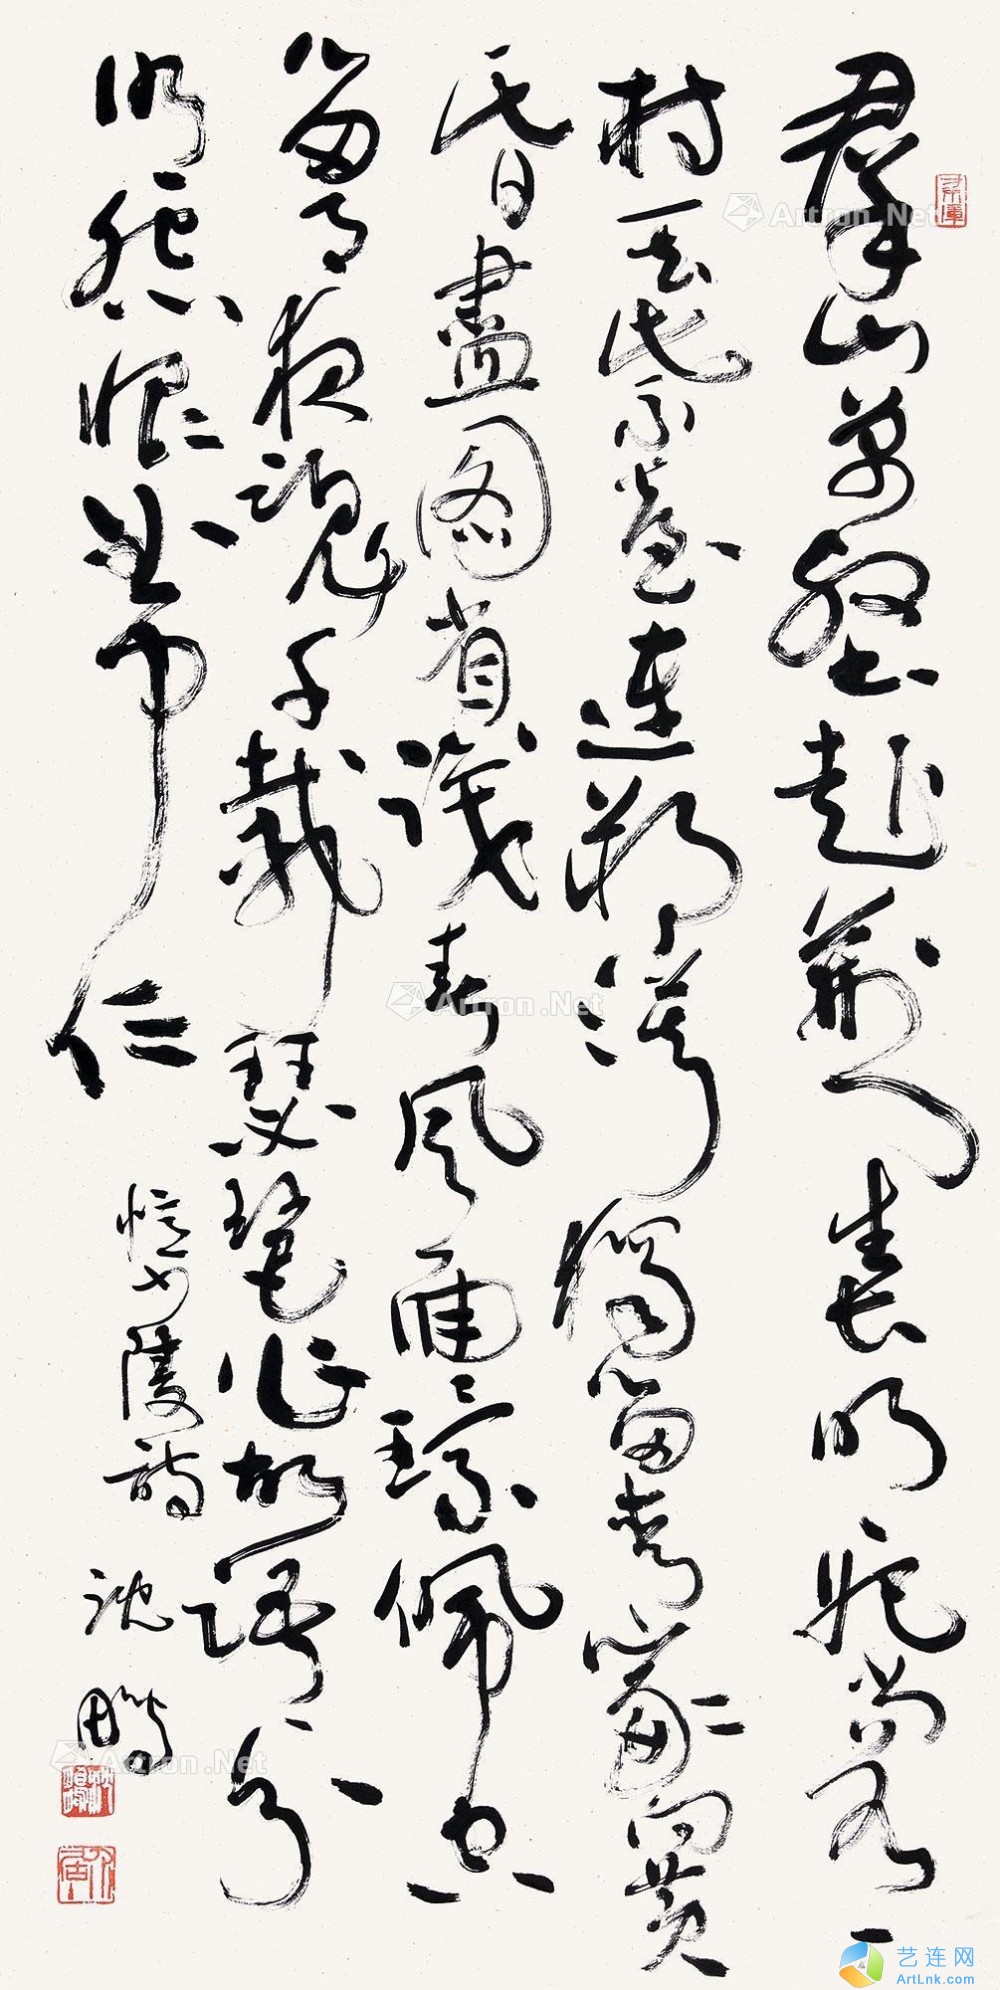 羣山万壑赴荆门生长明妃尚有
村一去紫台連朔漠獨留青冢向黄
昏盡图省識春风面環佩空
留月夜魂千載琵琶作胡語分
明怨恨曲中仁
憶少陵詩 沈鹏
Artron.Net
Artron.Net
Artron.Net
艺连网
ArtLnk.com